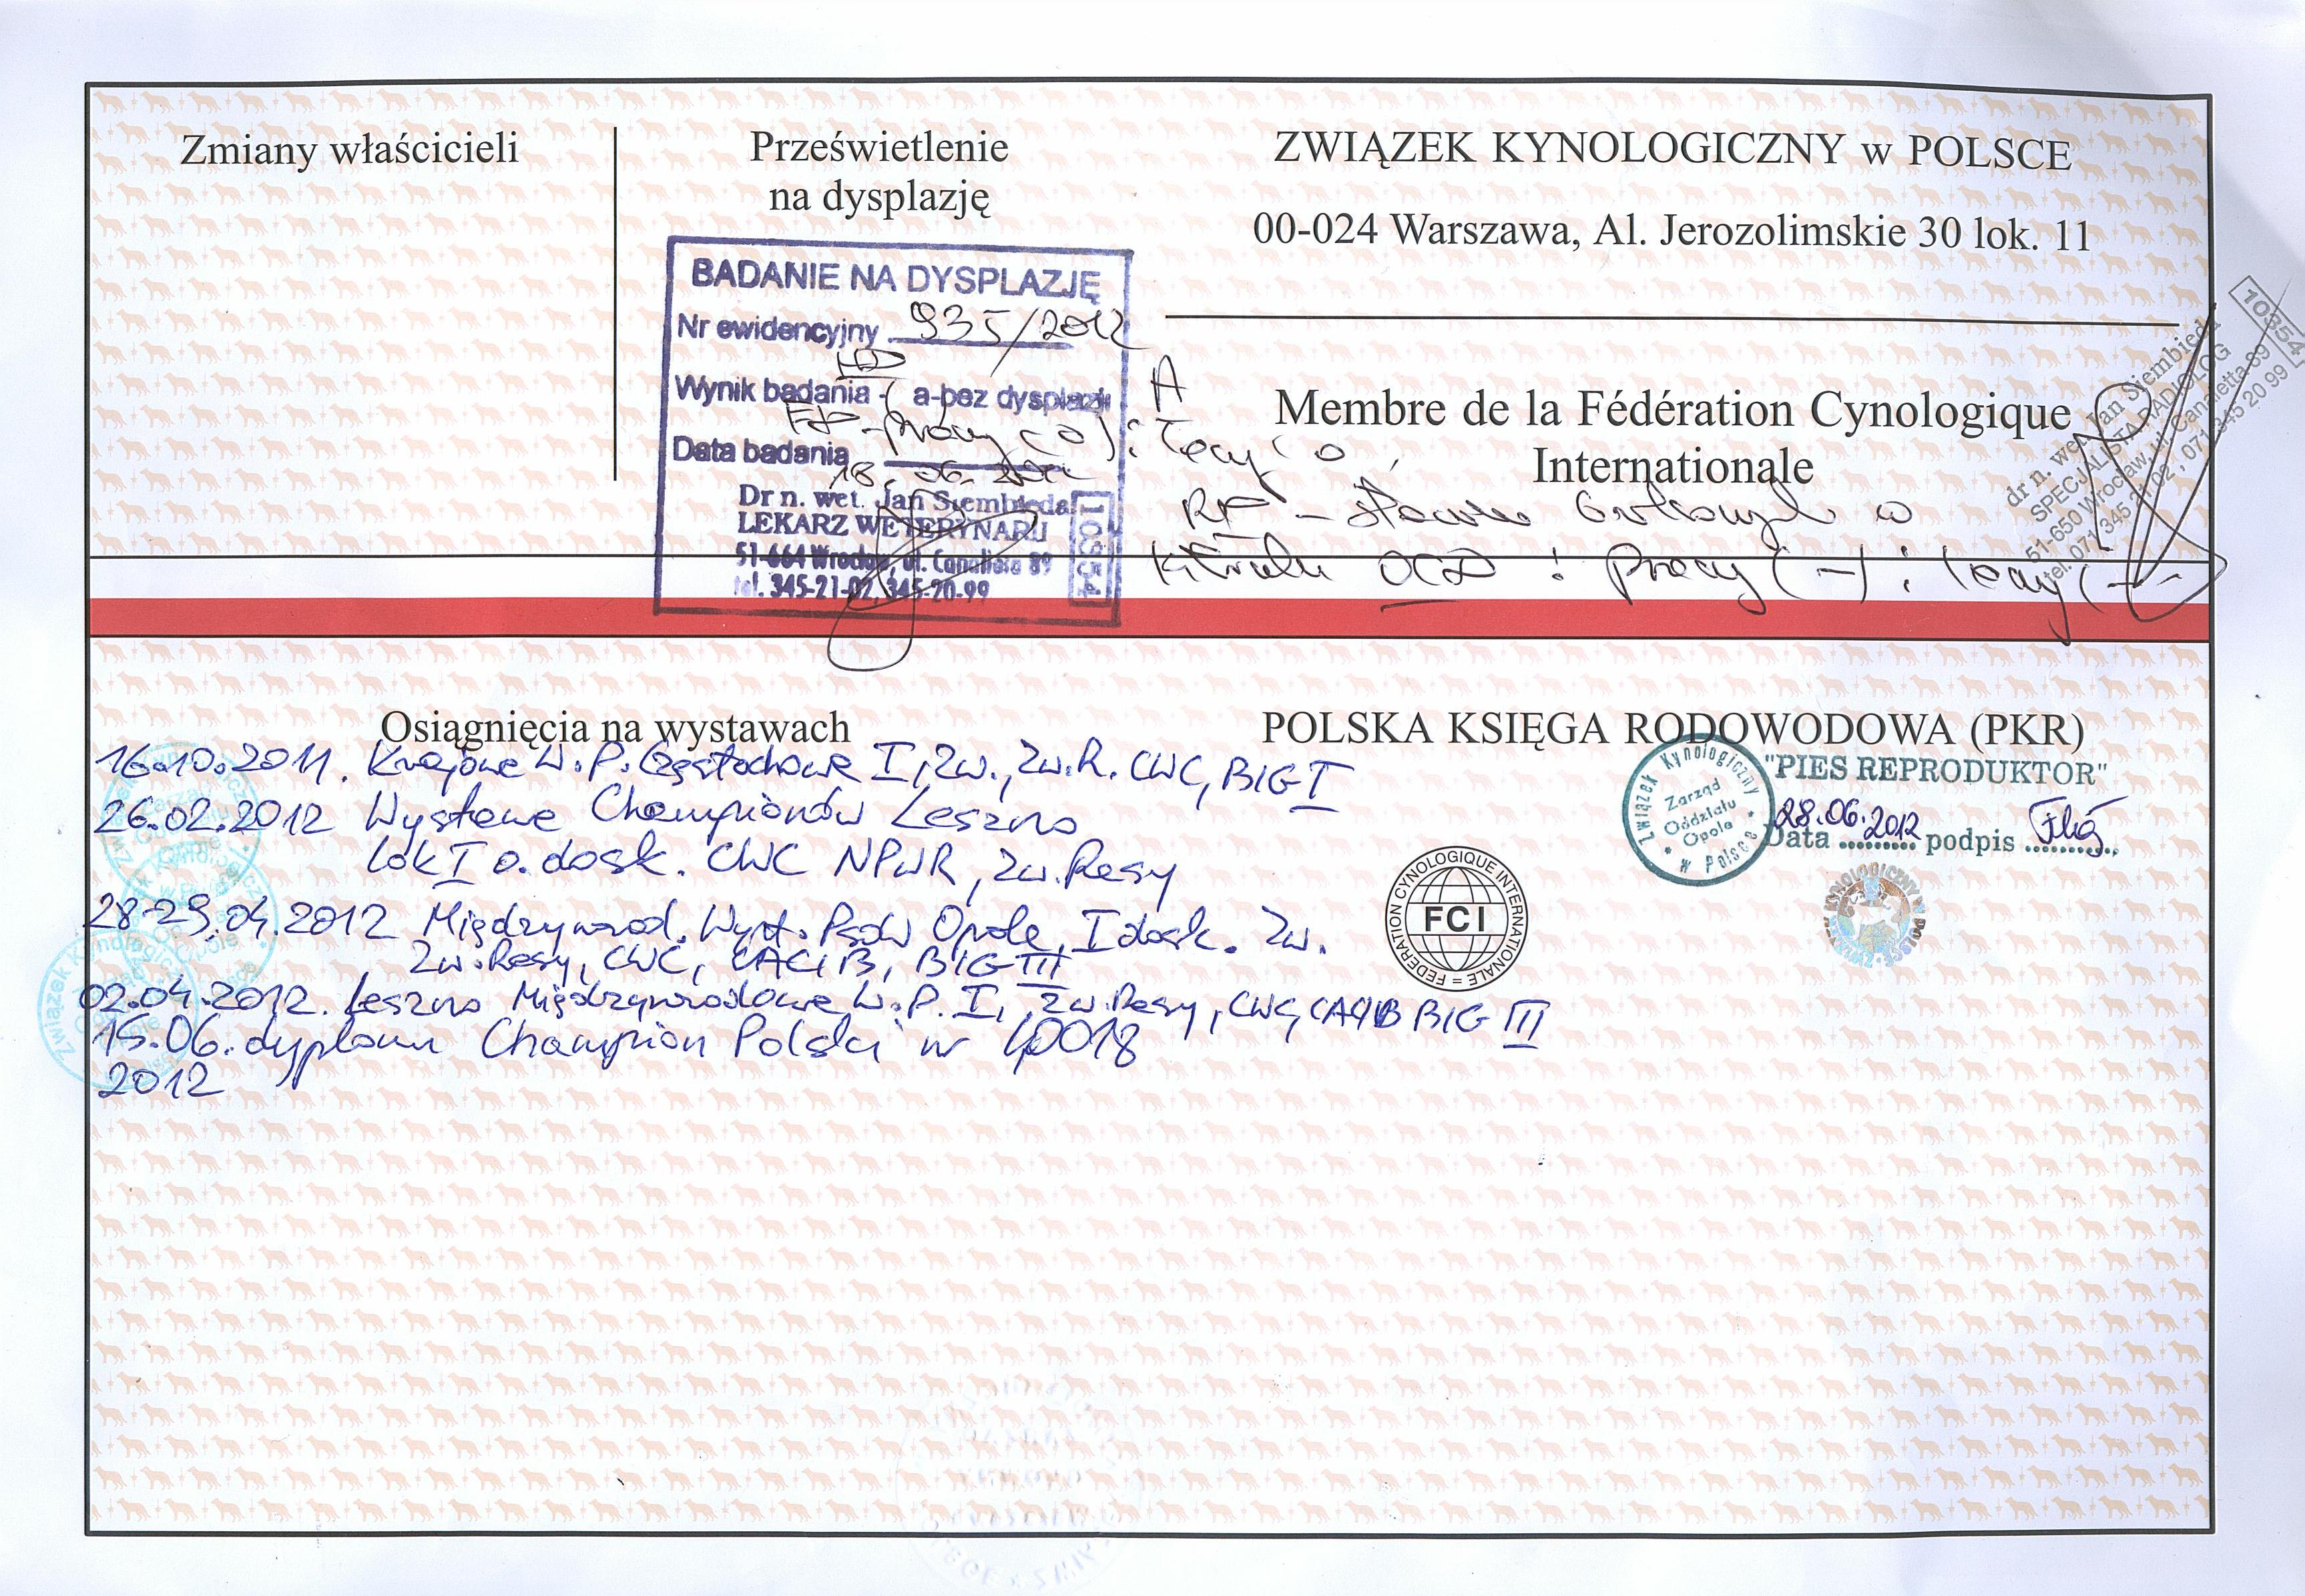 Zmiany właścicieli
Prześwietlenie
na dysplazję
BADANIE NA DYSPLAZJĘ
Nr ewidencyjny 935/2012
HD
Wynik badania - a-bez dysplazji A
ED - prawy (0) i lewy 0
Data badania
18.06.2012
Dr n. wet. Jan Siembieda
LEKARZ WETERYNARII
51-664 Wrocław, ul. Canaletta 89
tel. 345-21-02, 345-20-99
10354
ZWIĄZEK KYNOLOGICZNY w POLSCE
00-024 Warszawa, Al. Jerozolimskie 30 lok. 11
Membre de la Fédération Cynologique
Internationale
10354
dr n. wet. Jan Siembieda
SPECJALISTA RADIOLOG
51-650 Wrocław, ul. Canaletta 89
tel. 071 345 21 02, 071 345 20 99
w
OCD : prawy (-) i lewy (-)
Osiągnięcia na wystawach
16.10.2011. Krajowa W.P. Częstochowa I, Zw., Zw.R. CWC, BIG I
26.02.2012 Wystawa Championów Leszno
lok I o. dosk. CWC NPwR, Zw. Rasy
28-29.04.2012 Międzynarod. Wyst. Psów Opole, I dosk. Zw.
Zw. Rasy, CWC, CACIB, BIG III
02.04.2012. Leszno Międzynarodowa W.P. I, Zw. Rasy, CWC, CACIB BIG III
15.06. dyplom Champion Polski nr
2012
POLSKA KSIĘGA RODOWODOWA (PKR)
Związek Kynologiczny w Polsce
Zarząd
Oddziału
Opole
"PIES REPRODUKTOR"
Data 28.06.2012 podpis
FEDERATION CYNOLOGIQUE INTERNATIONALE
FCI